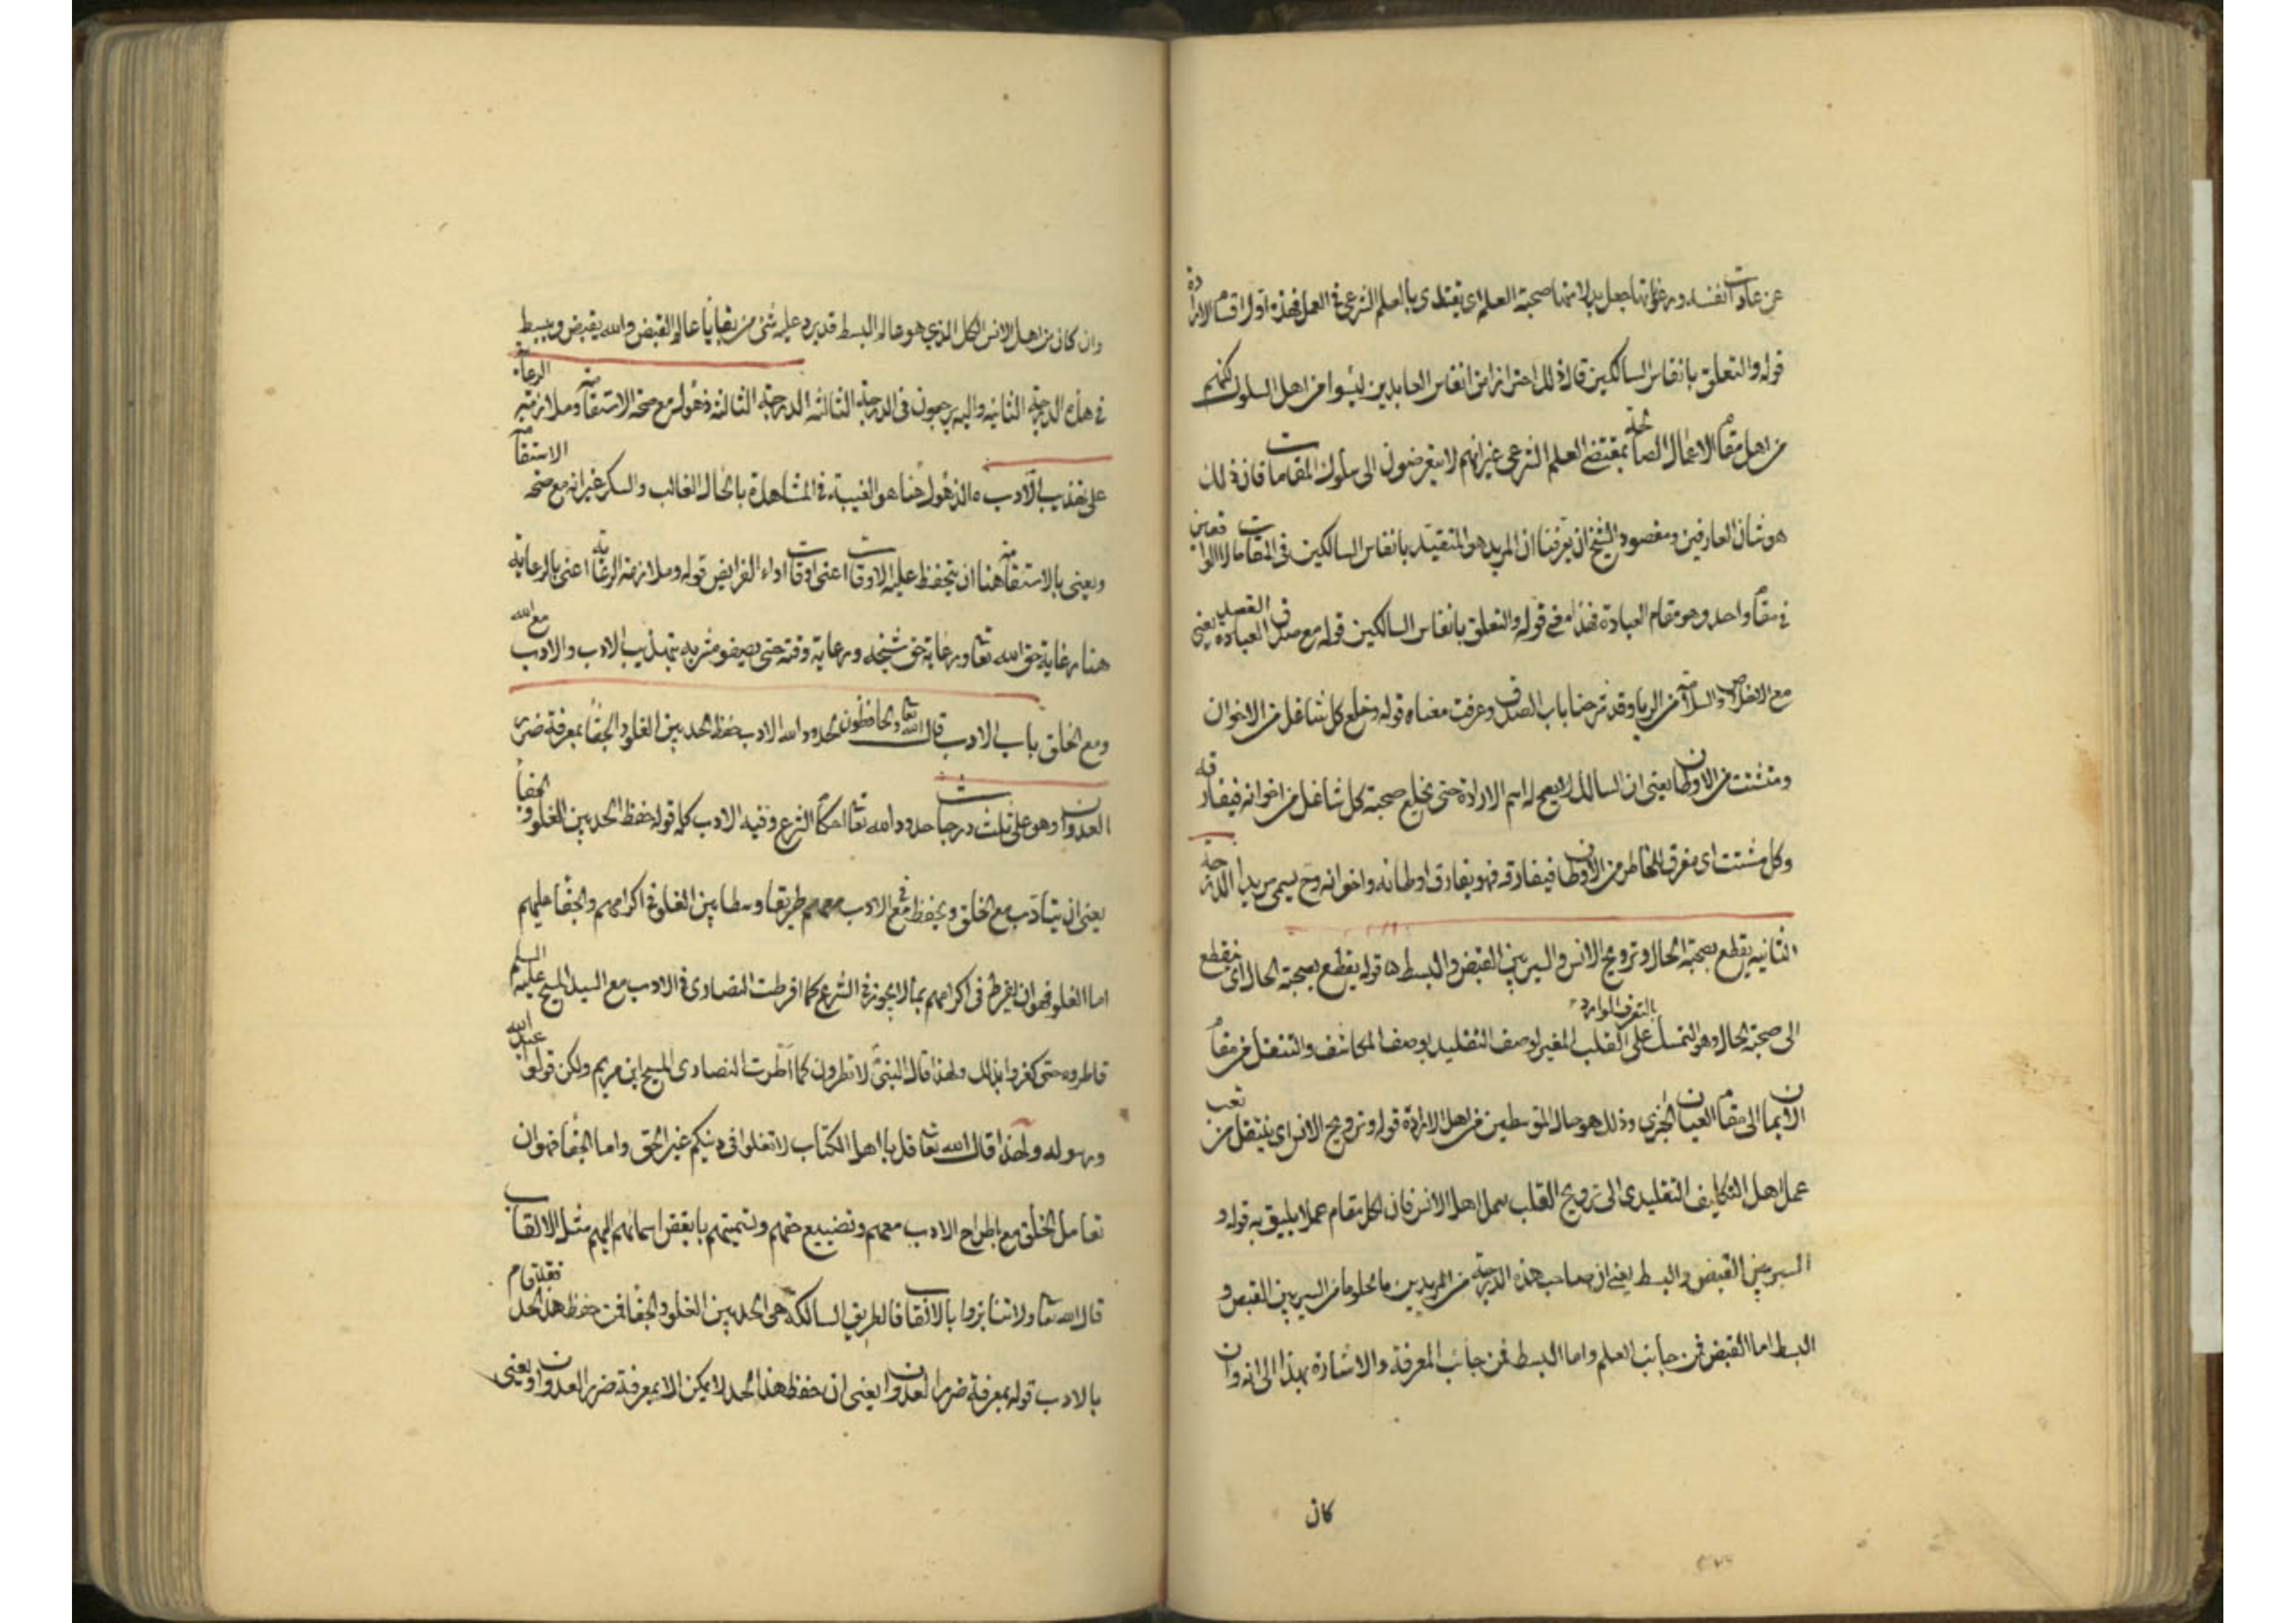 عن عادات نفسه ورعوناتها جعل بدلا منها صحبة العلم اى يقتدى بالعلم الشرعى فى العمل فهذه اول اقسام الارادة
قوله والتعلق بانفاس السالكين قال ذلك احترازا من انفاس العابدين ليسوا من اهل السلوك لكنهم
من اهل مقام الاعمال الصالحة بمقتضى العلم الشرعى غير انهم لا يتعرضون الى سلوك المقامات فان ذلك
هو شان العارفين ومقصود الشيخ ان يعرفنا ان المريد هو المتقيد بانفاس السالكين فى المقامات لا الواقفين
فى مقام واحد وهو مقام العبادة فهذا معنى قوله والتعلق بانفاس السالكين قوله مع صدق القصد يعنى العباده
مع الاخلاص والسلامة من الريا وقد شرحنا باب الصدق وعرفت معناه قوله وخلع كل شاغل من الاخوان
ومشتت من الاوطان يعنى ان السالك لا يصح له اسم الارادة حتى يخلع صحبة كل شاغل من اخوانه فيفارقه
وكل مشتت اى مفرق للخاطر من الاوطان فيفارقه فهو يفارق اوطانه واخوانه وح يسمى مريدا الدرجة
الثانيه يقطع بصحبة الحال وترويح الانس والسير بين القبض والبسط قوله يقطع بصحبة الحال اى ينقطع
الى صحبة الحال وهو التمسك بالتعرف الوارد على القلب المغير لوصف التقليد بوصف المكاشف والتنقل من مقام
الايمان الى مقام العيان الجزى وذلك هو حال المتوسطين من اهل الارادة قوله وترويح الانس اى ينتقل من تعب
عمل اهل التكاليف التقليدى الى ترويح القلب بعمل اهل الانس فان لكل مقام عملا يليق به قوله و
السير بين القبض والبسط يعنى ان صاحب هذه الدرجة من المريدين ما يخلو ما من السير بين القبض و
البسط اما القبض فمن جانب العلم واما البسط فمن جانب المعرفة والاشارة بهذا الى انه وان
كان
وان كان من اهل الانس الكل الذي هو عالم البسط قد يرد عليه شئ من بقايا عالم القبض والله يقبض ويبسط
فى هذه الدرجة الثانيه واليه يرجعون فى الدرجة الثالثه الدرجة الثالثة ذهول مع صحة الاستقامة وملازمة الرعاية
على تهذيب الادب ه الذهول هنا هو الغيبة فى المشاهدة بالحال الغالب والسكر غير انه مع صحة الاستقامة
ويعنى بالاستقامة هنا ان يتحفظ عليه الاوقات اعنى اوقات اداء الفرايض قوله وملازمة الرعاية اعنى بالرعاية
هنا رعاية حق الله تعا ورعاية حق شيخه ورعاية وقته حتى يصفو مشربه بتهذيب الادب والادب مع الله
ومع الخلق باب الادب قال الله تعا والحافظون لحدود الله الادب حفظ الحد بين الغلو والجفا بمعرفة ضرر
العدوان وهو على ثلث درجات حدود الله تعا احكام الشرع وفيه الادب كله قوله حفظ الحد بين الغلو والجفا
يعنى ان يتادب مع الخلق ويحفظ فى الادب معهم طريقا وسطا بين الغلو فى اكرامهم والجفا عليهم
اما الغلو فهو ان يفرط فى اكرامهم بما لا يجوز فى الشرع كما افرطت النصارى فى الادب مع السيد المسيح عليه السلم
فاطروه حتى كفروا بذلك ولهذا قال النبى لا تطرون كما اطرت النصارى المسيح ابن مريم ولكن قولوا عبد الله
ورسوله ولهذا قال الله تعا قل يا اهل الكتاب لا تغلوا فى دينكم غير الحق واما الجفا فهو ان
تعامل الخلق مع اطراح الادب معهم وتضييع حقهم وتسميتهم بابغض اسمائهم اليهم مثل الالقاب
قال الله تعا ولا تنابزوا بالالقاب فالطريق السالكة هى الحد بين الغلو والجفا فمن حفظ هذا الحد فقد قام
بالادب قوله بمعرفة ضرر العدوان يعنى ان حفظ هذا الحد لا يمكن الا بمعرفة ضرر العدوان ويعنى